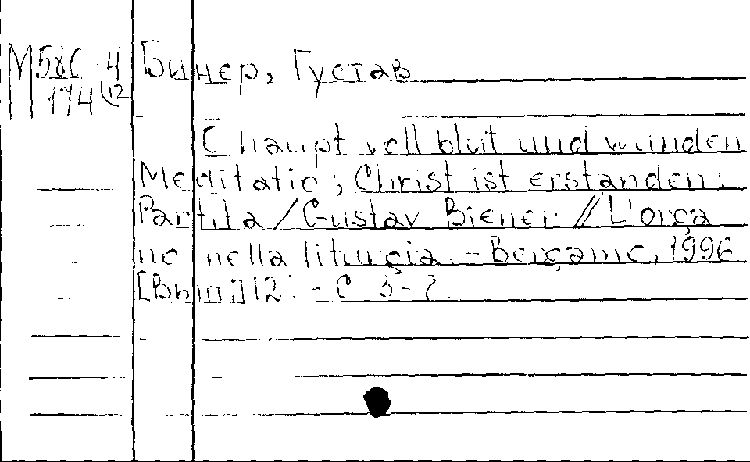 М58С 4 Бинер, Густав
174 12
O haupt voll blut und wunden
Meditatio; Christ ist erstanden:
Partita / Gustav Biener // L'orga
no nella liturgia. - Bergamo, 1996
[Вып] 12. - С 3-7.